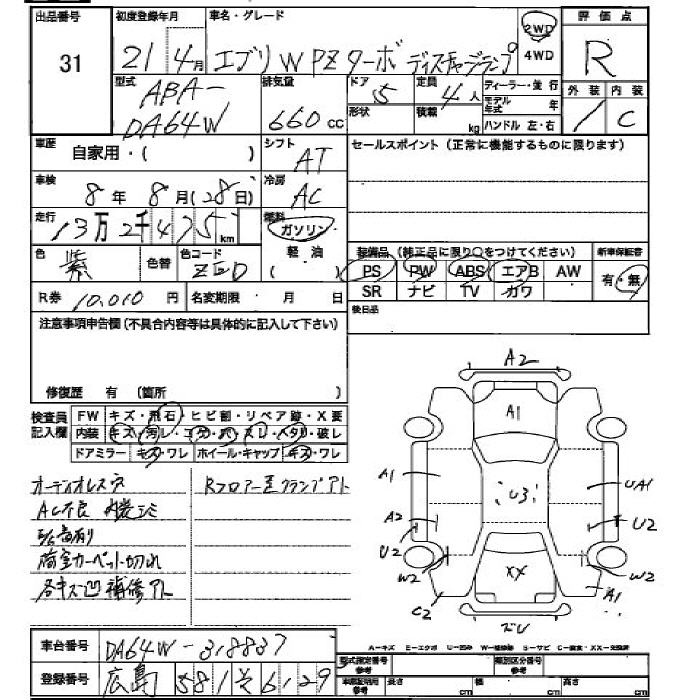 出品番号
31
初度登録年月
21年4月
車名・グレード
エブリ W PZターボ ディスチャージランプ
2WD
4WD
評価点
R
型式
ABA-
DA64W
排気量
660 cc
ドア
5
形状
定員
4人
積載
kg
ディーラー・並行
モデル年式 年
ハンドル 左・右
外装
内装
/
C
車歴
自家用・( )
シフト
AT
セールスポイント(正常に機能するものに限ります)
車検
8年8月(28日)
冷房
AC
走行
13万2千475 km
燃料
ガソリン
軽油
( )
色
紫
色替
色コード
ZED
装備品(純正品に限り○をつけてください)
新車保証書
PS PW ABS エアB AW
SR ナビ TV カワ
有・無
R券 10,010 円
名変期限 ・ 月 日
後日品
注意事項申告欄(不具合内容等は具体的に記入して下さい)
修復歴 有 (箇所 )
検査員記入欄
FW キズ・飛石・ヒビ割・リペア跡・X要
内装 キズ・汚レ・コゲ・穴・スレ・ヘタリ・破レ
ドアミラー キズ・ワレ ホイール・キャップ キズ・ワレ
オーディオレス穴
Rフロアー歪クランプアト
AC不良 内装シミ
荷室カーペット切れ
各キズ凹補修アト
A2
A1
A1
U3
UA1
A2
U2
U2
W2
XX
W2
C2
A1
A-キズ E-エクボ U-凹み W-補修跡 S-サビ C-腐食・XX-交換済
車台番号
DA64W-318837
登録番号
広島 581 そ 6129
型式指定番号
参考
類別区分番号
参考
車庫証明用
参考
長さ cm
幅 cm
高さ cm